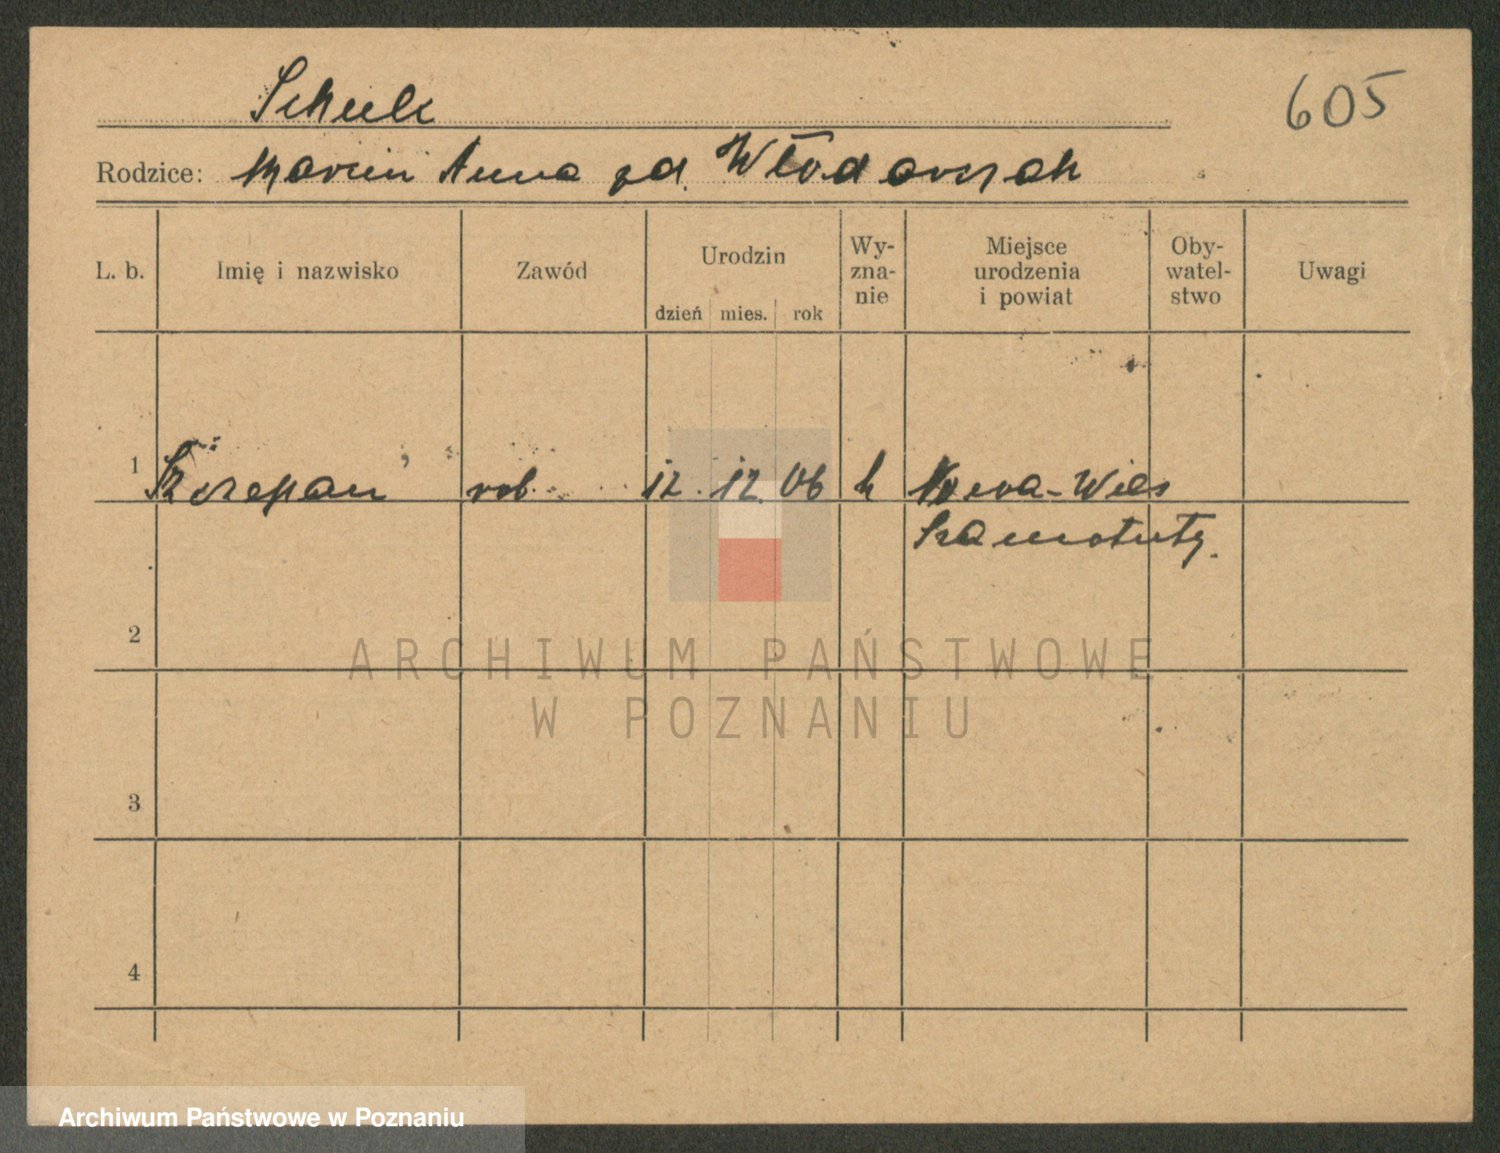 Schulz
605
Rodzice: Marcin Anna zd. Włodarczak
L. b.
Imię i nazwisko
Zawód
Urodzin
dzień mies. rok
Wy-
zna-
nie
Miejsce
urodzenia
i powiat
Oby-
watel-
stwo
Uwagi
1 Szczepan rob. 12. 12. 06 k Nowa-Wies
Szamotuły.
2
ARCHIWUM PAŃSTWOWE
W POZNANIU
3
4
Archiwum Państwowe w Poznaniu